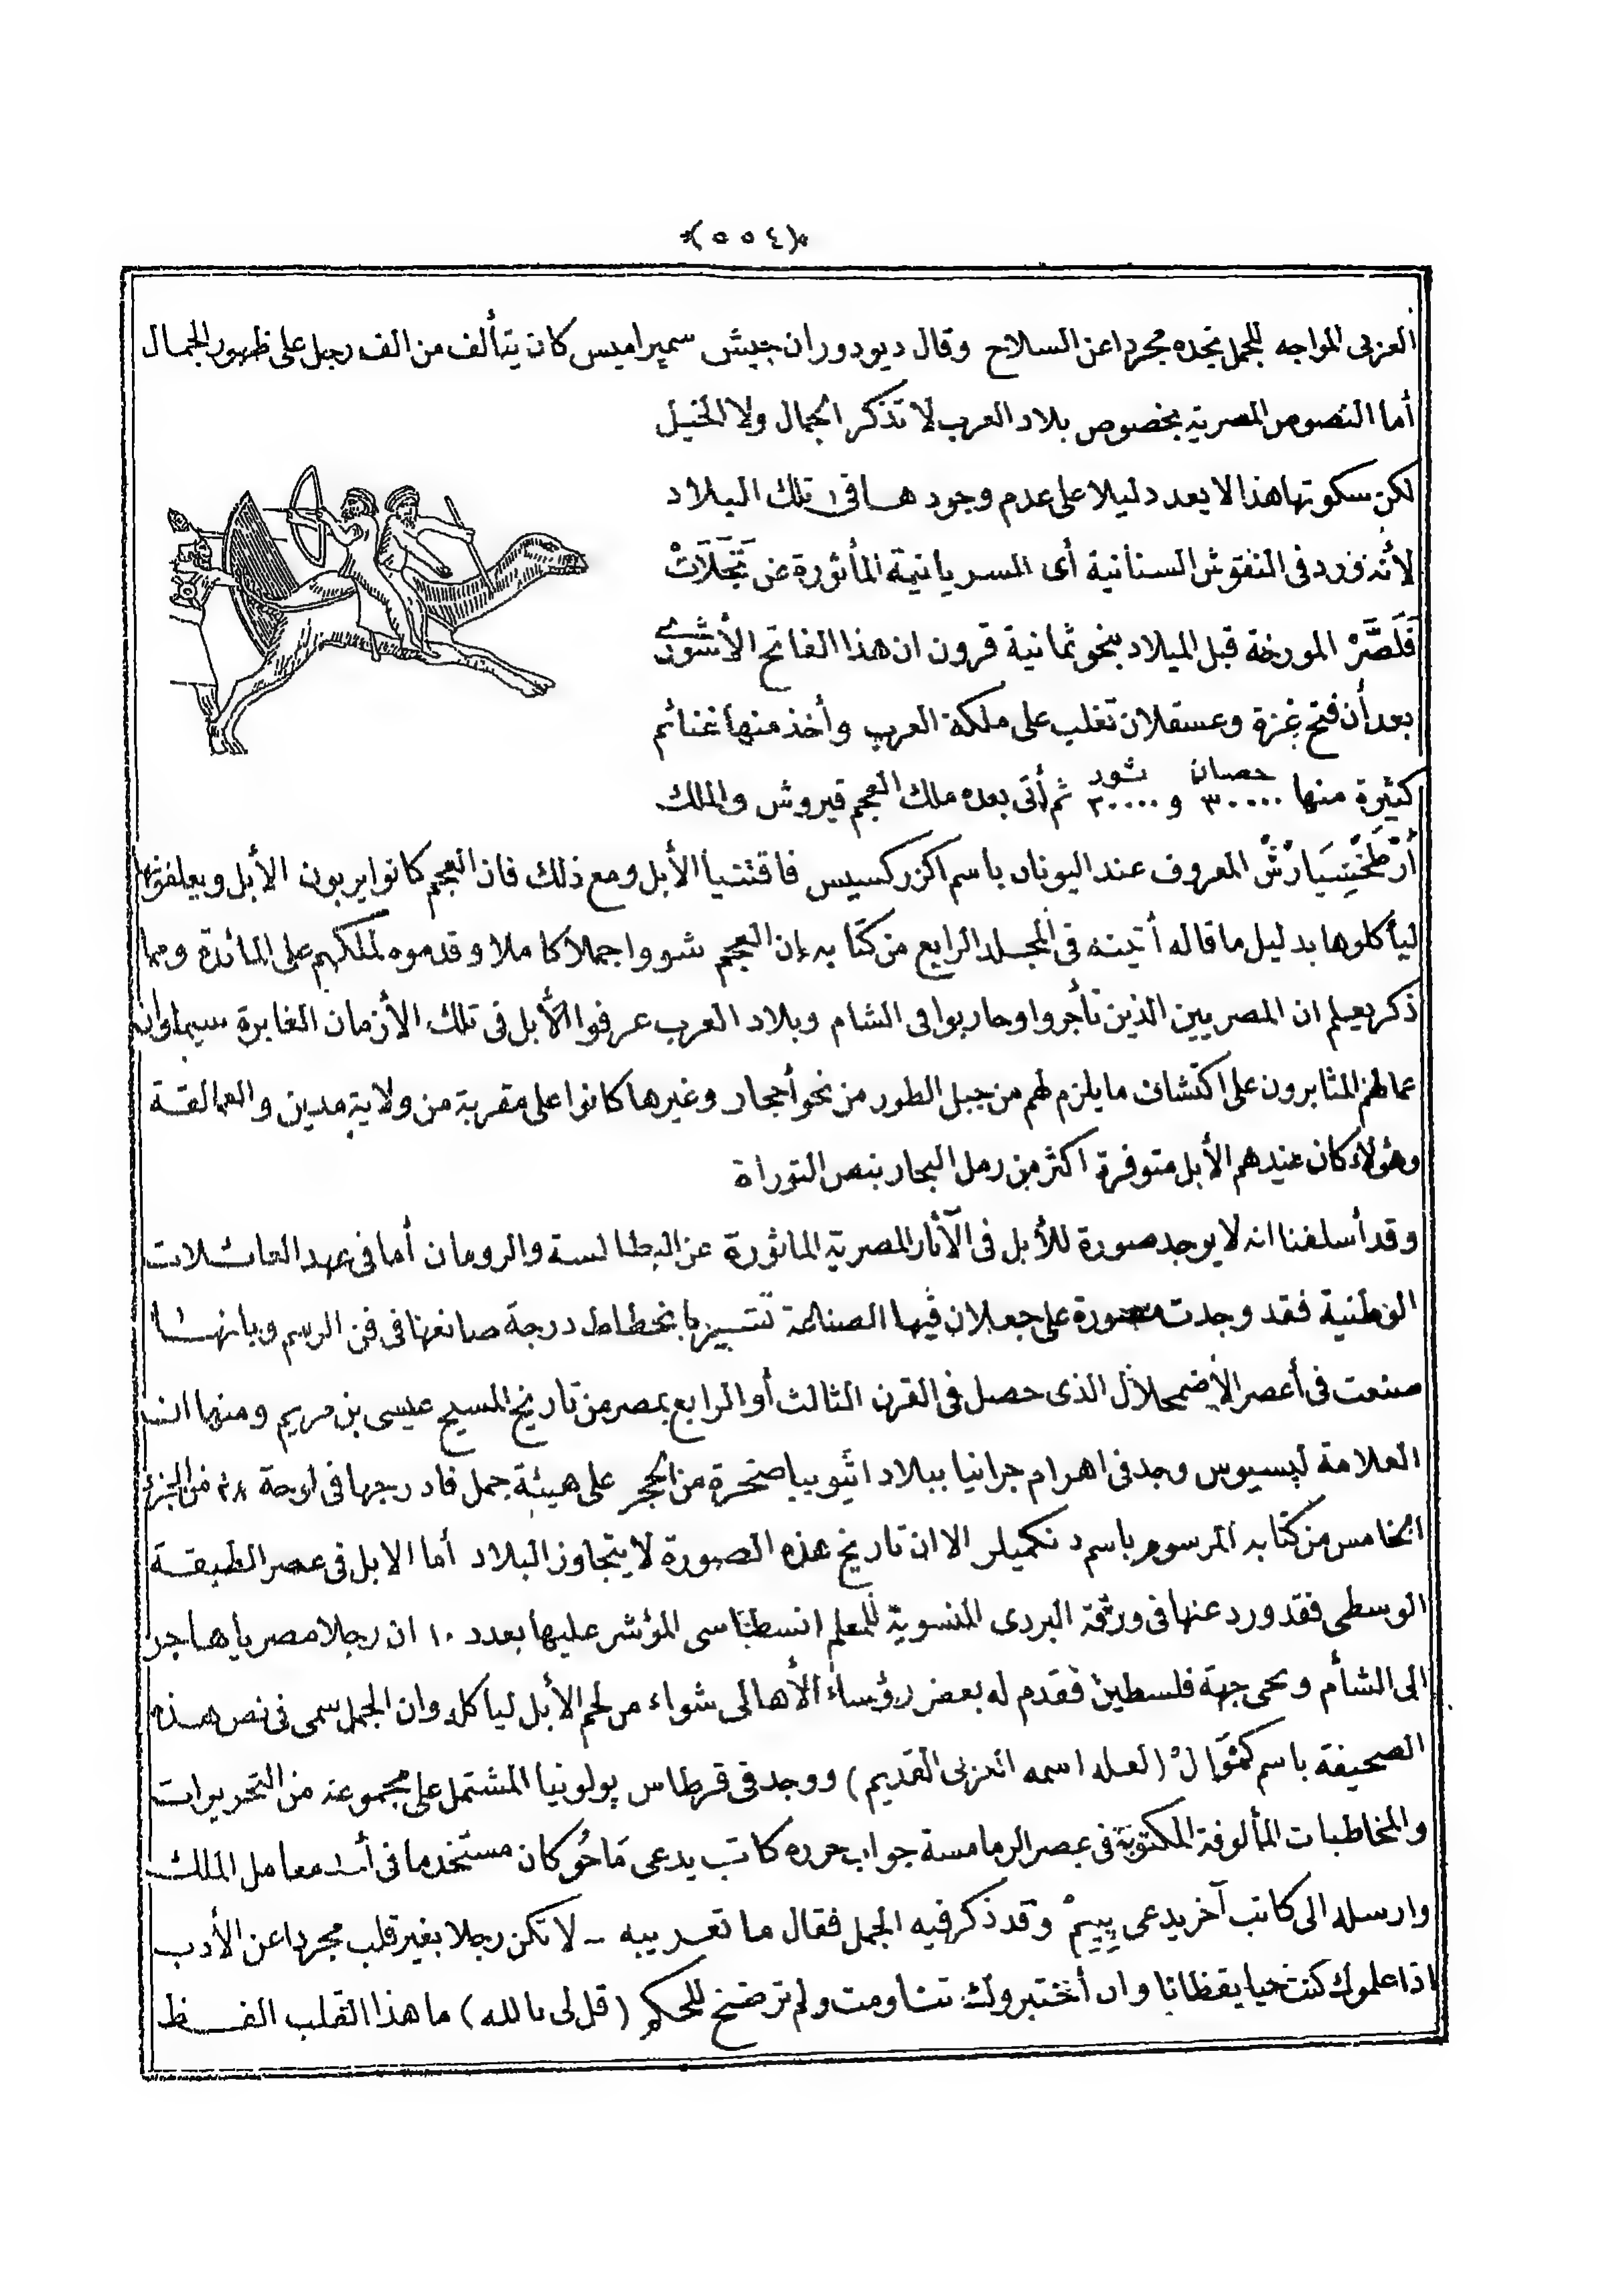 ﴿٥٥٤﴾
العربى المواجه للجمل تجده مجردا عن السلاح وقال ديودور ان جيش سميراميس كان يتألف من الف رجل على ظهور الجمال
أما النصوص المصرية بخصوص بلاد العرب لا تذكر الجمال ولا الخيل
لكن سكوتها هذا لا يعد دليلا على عدم وجودها فى تلك البلاد
لأنه ورد فى النقوش السنانية أى السريانية المأثورة عن تَجَلَاتْ
فَلَصَّرْ المورخة قبل الميلاد بنحو ثمانية قرون ان هذا الفاتح الأشورى
بعد أن فتح غزة وعسقلان تغلب على ملكة العرب وأخذ منها غنائم
كثيرة منها ٣٠٠٠٠ حصان و ٢٠٠٠٠ ثور ثم أتى بعده ملك العجم قيروش والملك
أَرْطَخْتِسَيَارْشْ المعروف عند اليونان باسم اكزركسيس فاقتنيا الأبل ومع ذلك فان العجم كانوا يربون الأبل ويعلفونها
ليأكلوها بدليل ما قاله أتينه فى المجلد الرابع من كتابه إن العجم شووا جملا كاملا وقدموه لملكهم على المائدة ومما
ذكر يعلم ان المصريين الذين تأجروا وحاربوا فى الشام وبلاد العرب عرفوا الأبل فى تلك الأزمان الغابرة سيما وان
عمالهم المثابرون على اكتشاف ما يلزم لهم من جبل الطور من نحو أحجار وغيرها كانوا على مقربة من ولاية مدين والعمالقة
وهؤلاء كان عندهم الأبل متوفرة اكثر من رمل البحار بنص التوراة
وقد أسلفنا انه لا يوجد صورة للأبل فى الآثار المصرية الماثورة عن البطالسة والرومان أما فى عهد العائلات
الوطنية فقد وجدت مصورة على جعلان فيها الصناعة تتميز بانحطاط درجة صانعها فى فن الرسم وبانها
صنعت فى أعصر الأضمحلال الذى حصل فى القرن الثالث أو الرابع بمصر من تاريخ المسيح عيسى بن مريم ومنها ان
العلامة لپسيوس وجد فى اهرام جرانيا ببلاد اثيوبيا صخرة من الحجر على هيئة جمل فادرجها فى لوحة ٢٨ من الجزء
الخامس من كتابه المرسوم باسم دنكميلر الا ان تاريخ هذه الصورة لا يتجاوز البلاد أما الابل فى عصر الطبقة
الوسطى فقد ورد عنها فى ورقة البردى المنسوبة للمعلم انسطتاسى المؤشر عليها بعدد ١٠ ان رجلا مصريا هاجر
الى الشأم ونحى جهة فلسطين فقدم له بعض رؤساء الأهالى شواء من لحم الأبل لياكله وان الجمل سمى فى نص هذه
الصحيفة باسم كَمْوَالْ (لعله اسمه العربى القديم) ووجد فى قرطاس پولونيا المشتمل على مجموعة من التحريرات
والمخاطبات المألوفة المكتوبة فى عصر الرمامسة جواب حرره كاتب يدعى مَاحُو كان مستخدما فى أحد معامل الملك
وارسله الى كاتب آخر يدعى پِيبِمْ وقد ذكر فيه الجمل فقال ما تعريبه - لا تكن رجلا بغير قلب مجردا عن الأدب
اذا علموك كنت حيا يقظانا وان أختبروك تناومت ولم ترضخ للحكم (قل لى بالله) ما هذا القلب الفظ